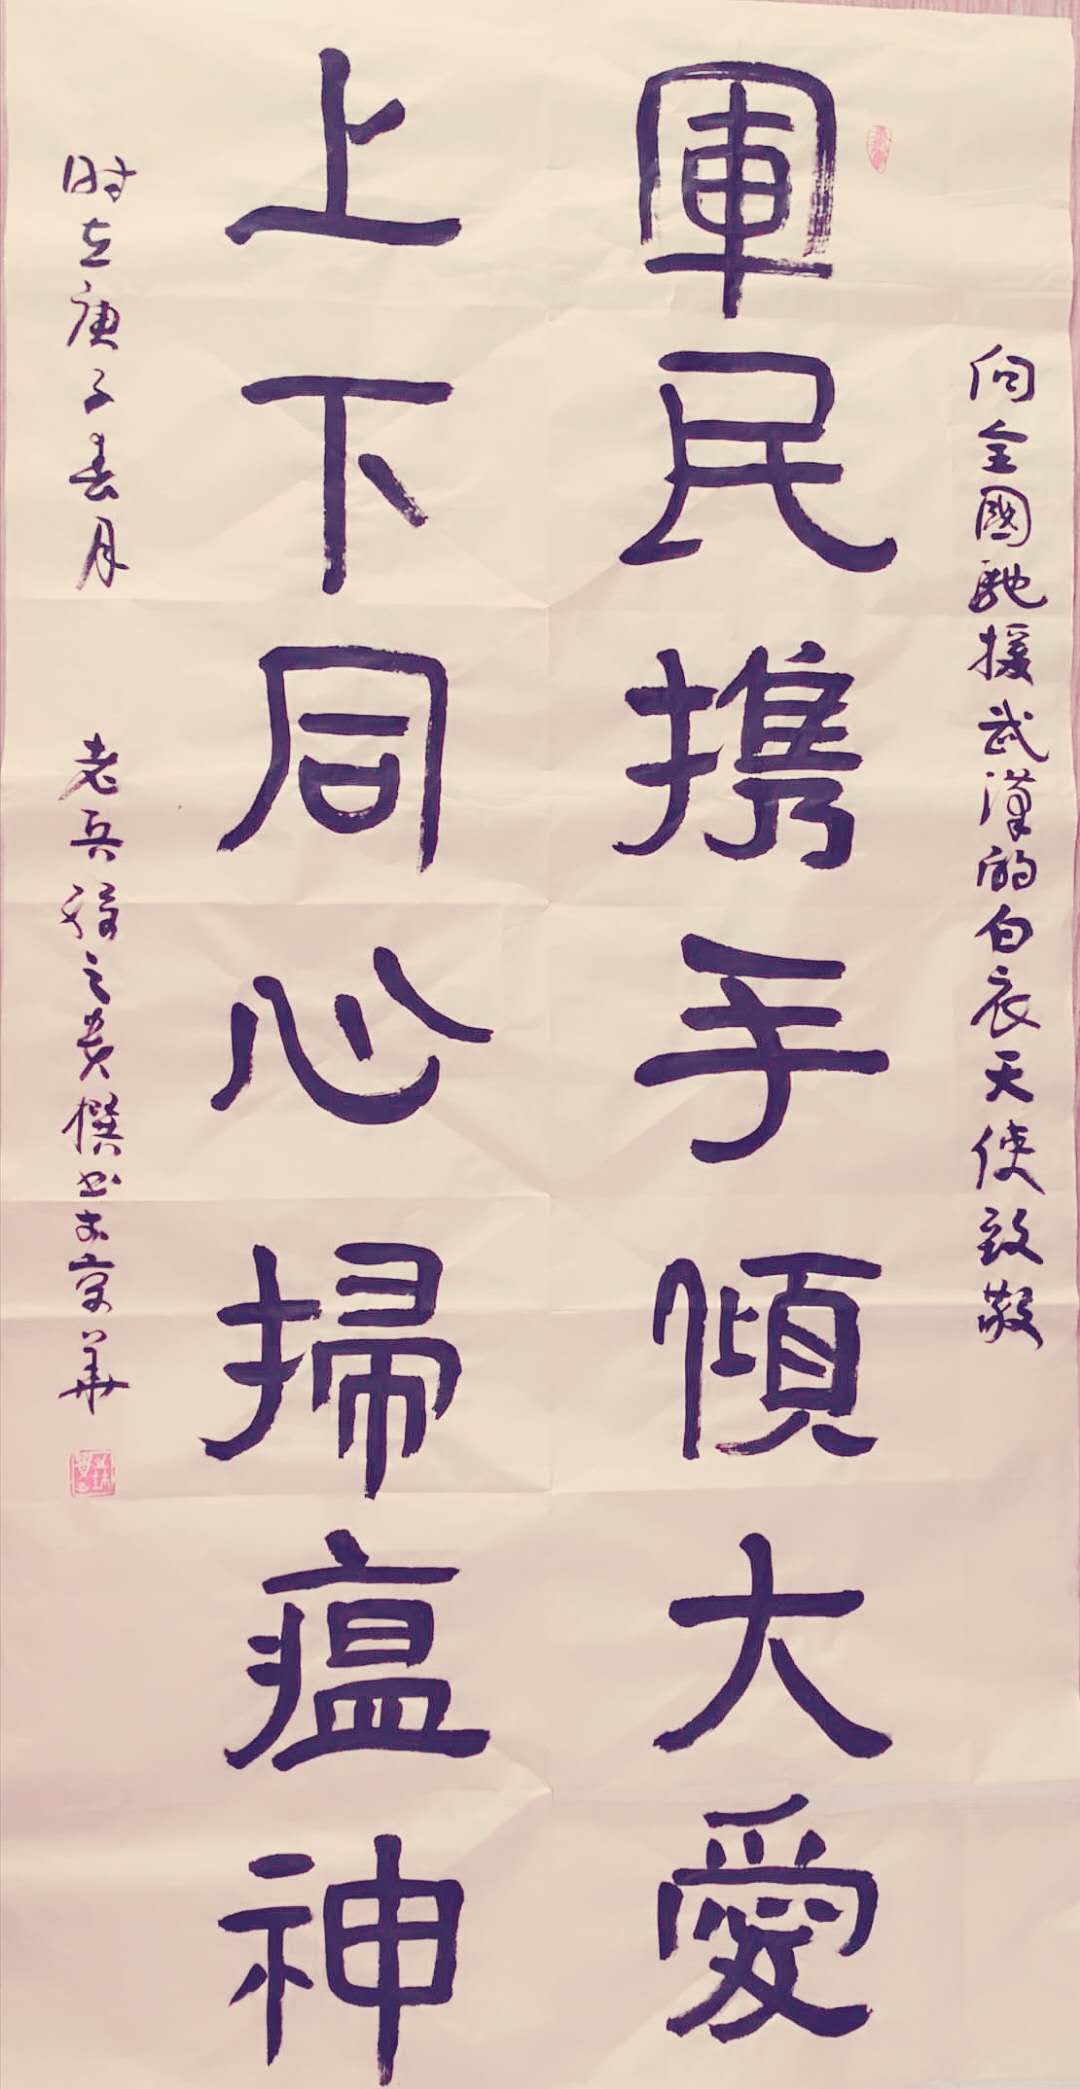 向全國馳援武漢的白衣天使致敬
軍民携手傾大愛
上下同心掃瘟神
时在庚子春月
老兵 之貴撰书 京華